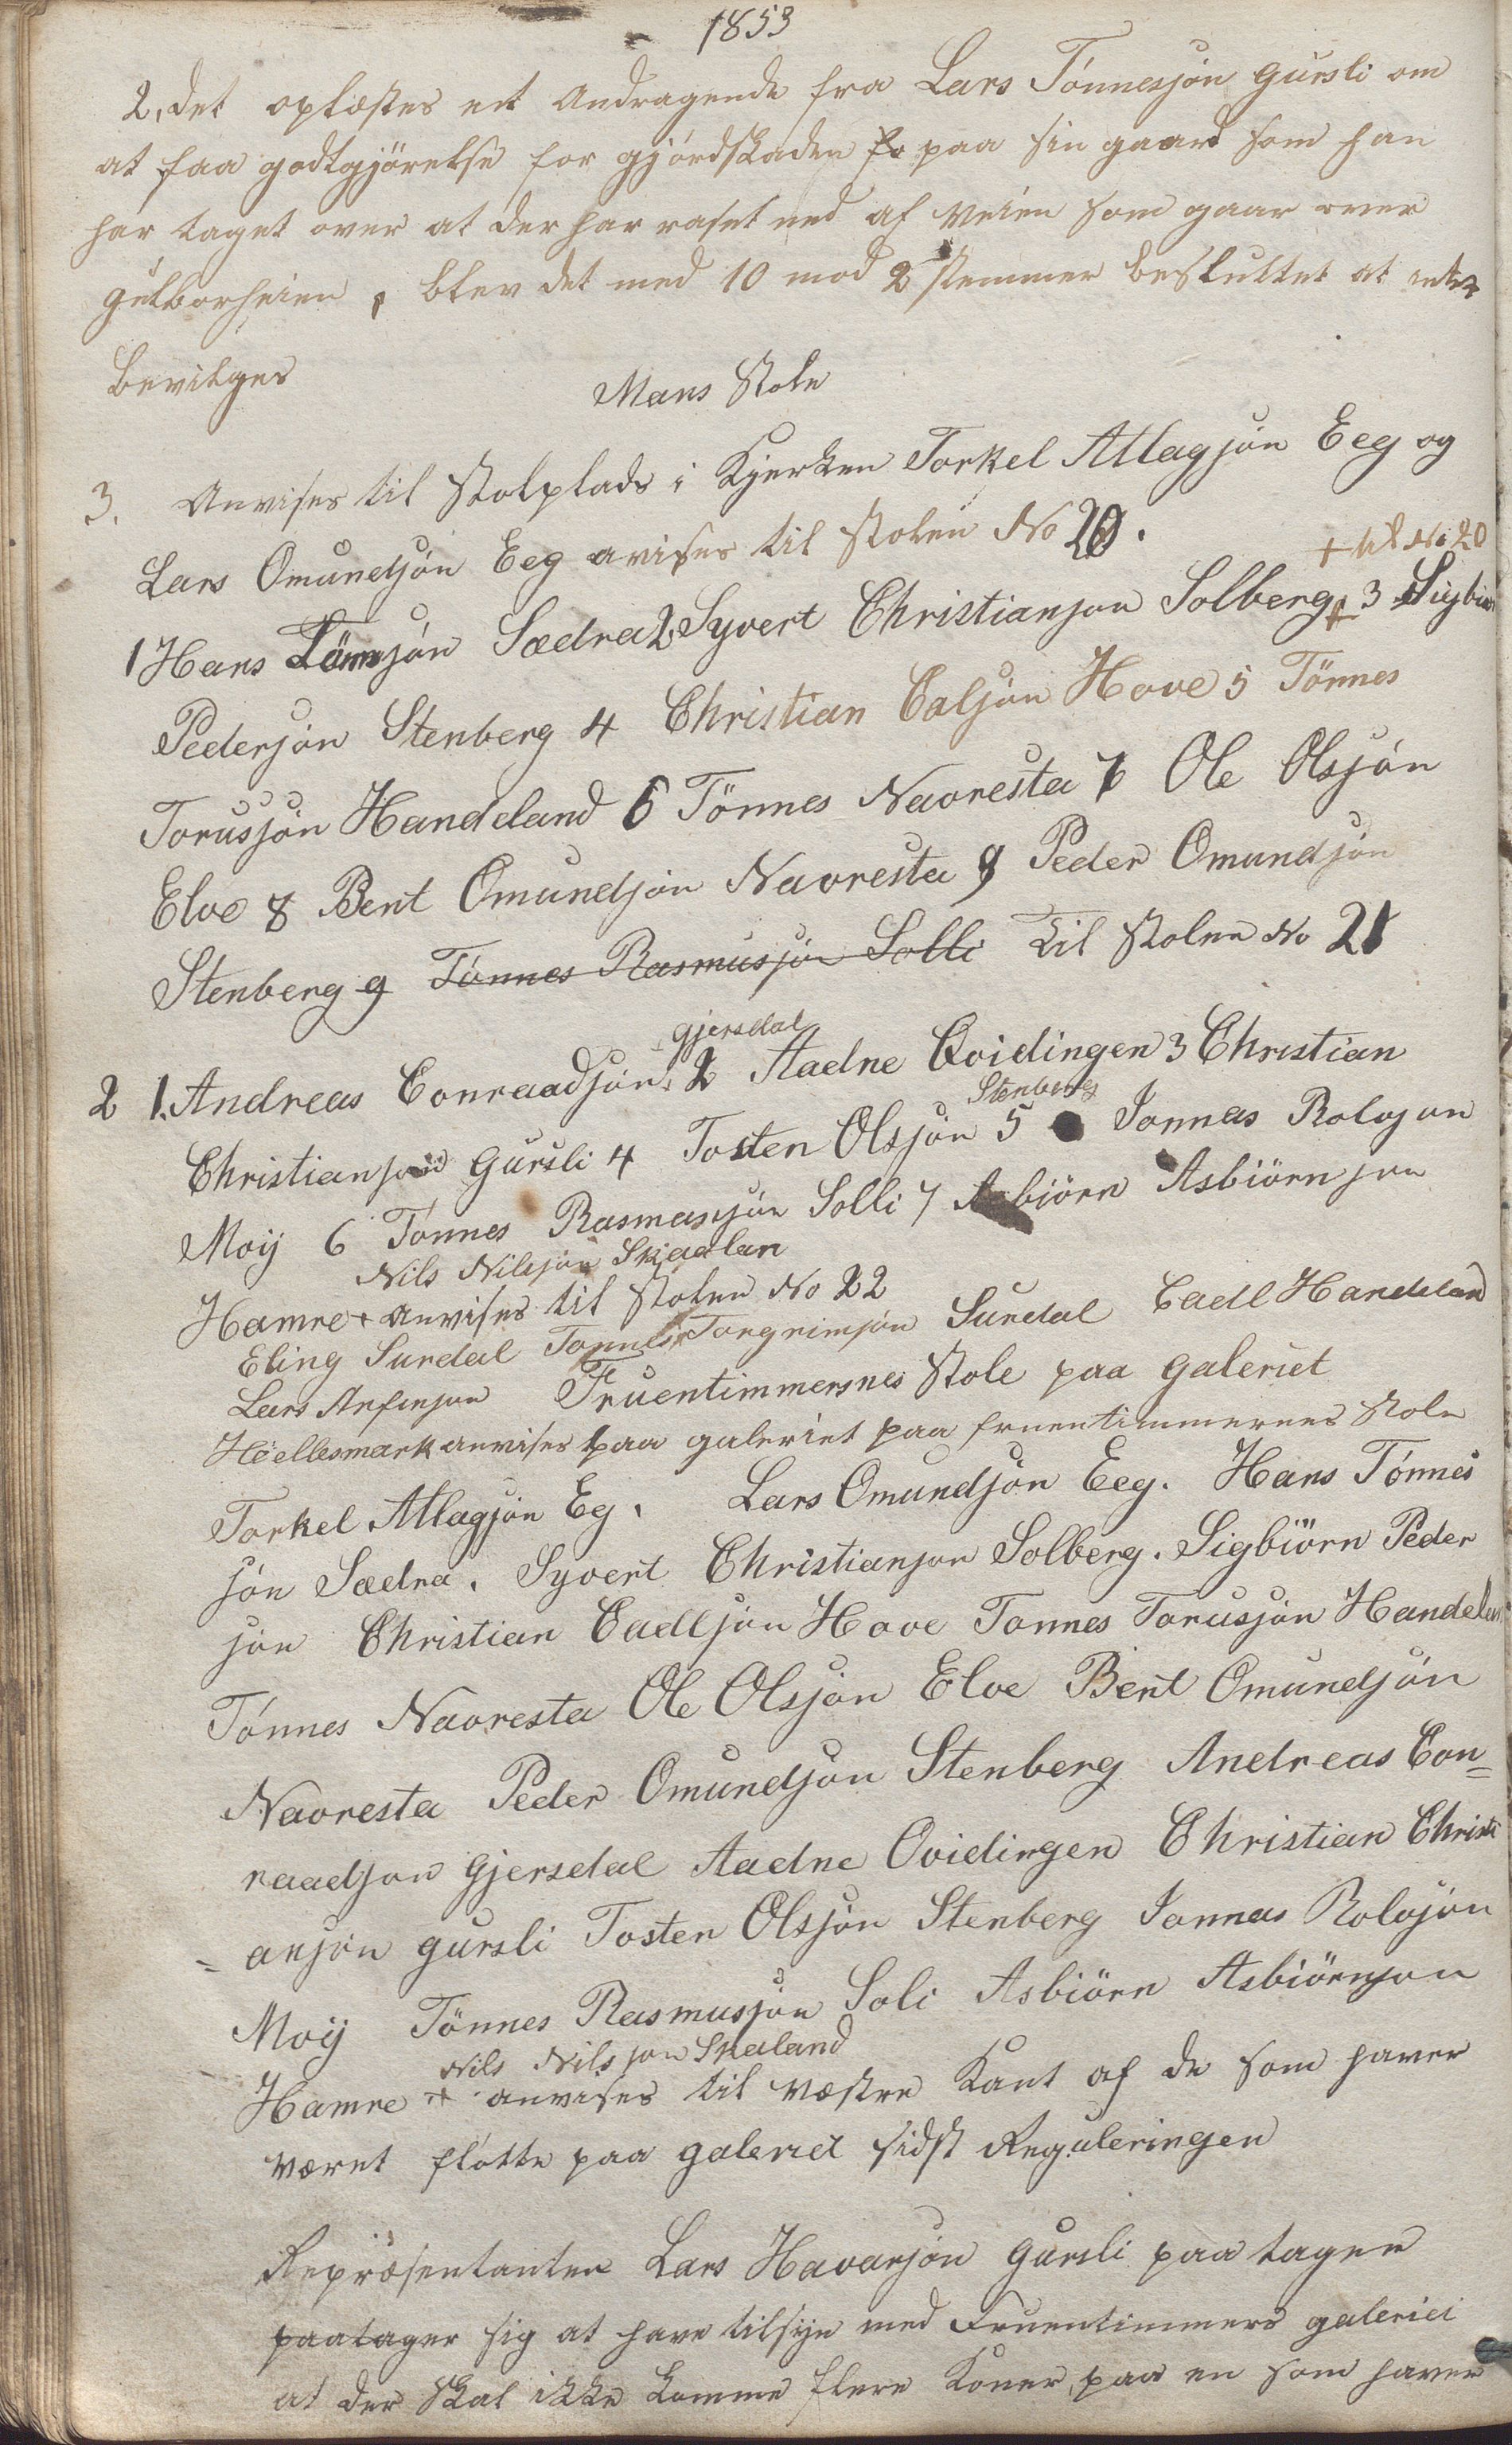 1853
2, det oplæstes eit Andragende fra Lars Tönnesjön Gursli om
at faa godtgjörelse for gjördskaden fo paa sin gaard som han
har taget over at der har raset ned af Veien som gaar over
gulborheien, blev det med 10 mod 2 stemmer besluttet at intet
bevilges
Mans Stole
3. Anvises til Stolplads i Kjerken Torkel Atlagjön Eeg og
Lars Omundsjön Eeg avises til Stolen No 20.
+ til No 20
1 Hans Tönnsjön Sædra 2 Syvert Christianjon Solberg + 3 Sigbiör
Pedersjön Stenberg 4 Christian Caljön Hove 5 Tönnes
Torusjön Handeland 6 Tönnes Navresta 7 Ole Olsjön
Elve 8 Bent Omundjön Navresta 9 Peder Omundjön
Stenberg 9 Tönnes Rasmusjön Solli Til Stolen No 21
Gjersdal
2 1. Andreas Conraadjön, 2 Aadne Qvidingen 3 Christian
Stenberg
Christianjon Gursli 4 Tosten Olsjön 5 Jonnas Rolojon
Moij 6 Tönnes Rasmasjön Solli 7 Asbiörn Asbiörnjon
Nils Nilsjon Skjadlan
Hamre + anvises til Stolen No 22
Eling Surdal Torgrimjön Surdal Cadl Handeland
Lars Anfinjon Fruentimmernes Stole paa Galeriet
Höellesmark anvises paa galeriet paa fruentimmernes Stole
Torkel Atlagjön Eg. Lars Omundjön Eeg. Hans Tönnes
jön Sædra. Syvert Christianjon Solberg. Sigbiörn Peder
jön Christian Cadljön Hove Tonnes Torusjön Handelan
Tönnes Navresta Ole Olsjön Elve Bent Omundjön
Navresta Peder Omundjön Stenberg Andreas Con=
raadjon Gjersdal Aadne Qvidingen Christian Christi
= anjön gursli Tosten Olsjön Stenberg Jonnas Rolojön
Moij Tönnes Rasmusjön Soli Asbiörn Asbiörnjon
Nils Nilsjon Skaland
Hamre + anvises til Væstre Kant af de som haver
været flötte paa galeriet sidst Reguleringen
Repræsentanten Lars Havarjön Gursli paa tager
paatager sig at have tilsyn med Fruentimmers galeriei
at der Skal ikke komme flere Koner paa en som haver